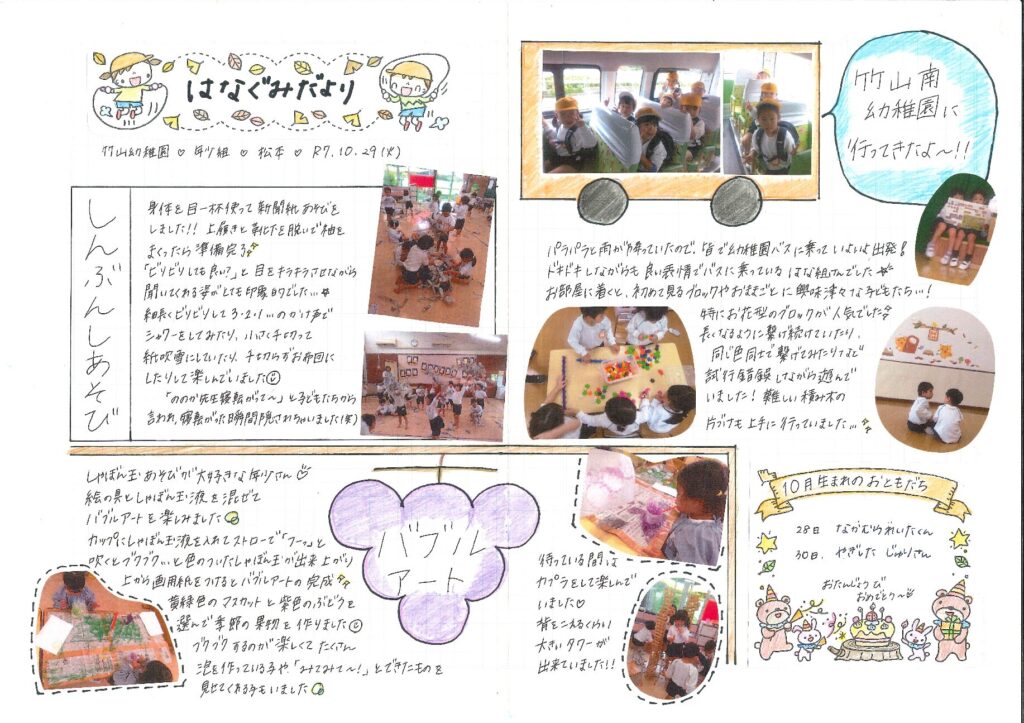 はなぐみだより
竹山幼稚園 ♡ 年少組 ♡ 松本 ♡ R7.10.29(水)
しんぶんしあそび
身体を目一杯使って新聞紙あそびを
しました!! 上履きと靴下を脱いで袖を
まくったら準備完了
「ビリビリしても良い?」と目をキラキラさせながら
聞いてくれる姿がとても印象的でした…☆
細長くビリビリして3・2・1…のかけ声で
シャワーをしてみたり、小さくちぎって
紙吹雪にしていたり、
したりして楽しんでいました
「ののか先生寝転がって〜」と子どもたちから
言われ、寝転がった瞬間隠されちゃいました(笑)
竹山南
幼稚園に
行ってきたよ〜!!
パラパラと雨が降っていたので、皆で幼稚園バスに乗っていよいよ出発!
ドキドキしながらも良い表情でバスに乗っているはな組さんでした☆
お部屋に着くと、初めて見るブロックやおままごとに興味津々な子どもたち…!
特にお花型のブロックが人気でした
長くなるように繋げ続けていたり、
同じ色同士で繋げてみたりなど
試行錯誤しながら遊んで
いました! 難しい積み木の
片づけも上手に行っていました…
しゃぼん玉あそびが大好きな年少さん♡
絵の具としゃぼん玉液を混ぜて
バブルアートを楽しみました
カップにしゃぼん玉液を入れてストローで「フーッ」と
吹くとブクブク…と色のついたしゃぼん玉が出来上がり
上から画用紙をつけるとバブルアートの完成
黄緑色のマスカットと紫色のぶどうを
選んで季節の果物を作りました
ブクブクするのが楽しくてたくさん
泡を作っている子や「みてみて〜!」とできたものを
見せてくれる子もいました
バブル
アート
待っている間は
カプラをして楽しんで
いました♡
背をこえるくらい
大きいタワーが
出来ていました!!
10月生まれのおともだち
28日 なかむられいたくん
30日 やぎした じゅりさん
おたんじょうび
おめでとう〜♡